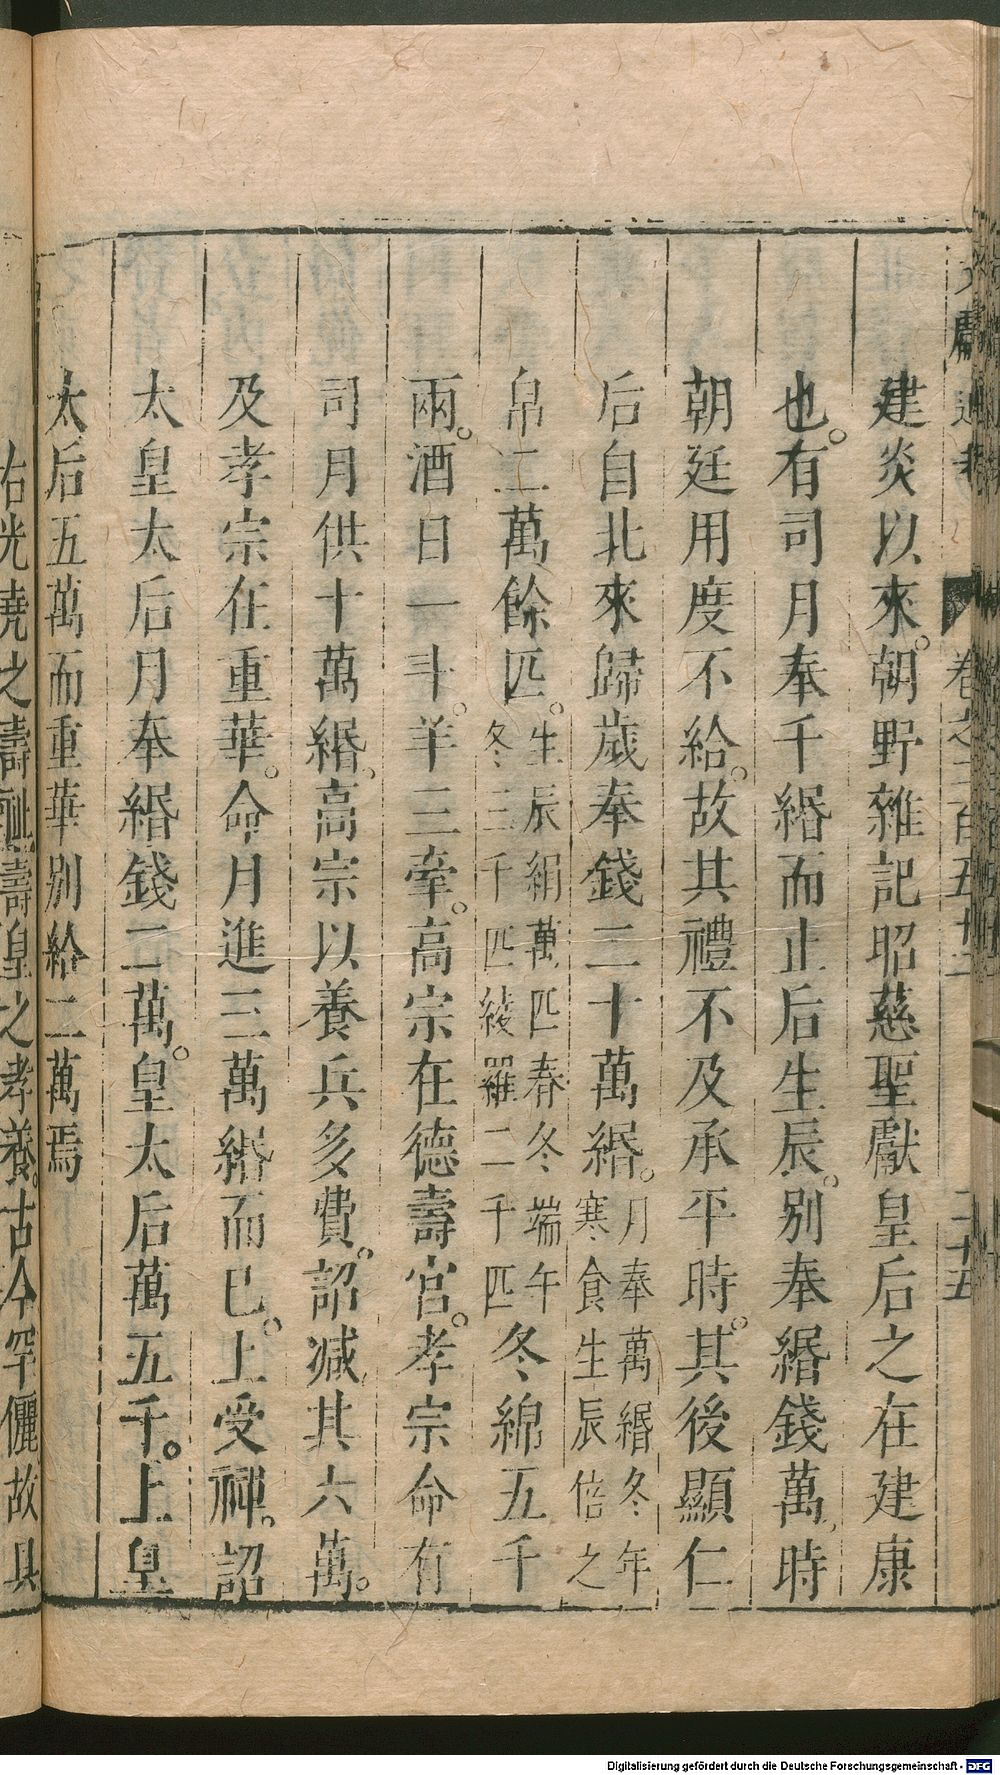 建炎以來。朝野雜記昭慈聖獻皇后之在建康
也。有司月奉千緡而止后生辰。別奉緡錢萬。時
朝廷用度不給。故其禮不及承平時。其後顯仁
后自北來歸歲奉錢二十萬緡。月奉萬緡冬年寒食生辰倍之
帛二萬餘匹。生辰絹萬匹春冬端午冬三千匹綾羅二千匹冬綿五千
兩。酒日一斗。羊三牽。高宗在德壽宮。孝宗命有
司月供十萬緡。高宗以養兵多費。詔減其六萬。
及孝宗在重華。命月進三萬緡而已。上受禪。詔
太皇太后月奉緡錢二萬。皇太后萬五千。上皇
太后五萬而重華別給二萬焉
右光堯之壽祉壽皇之孝養。古今罕儷故具
卷之二百五十二
二十五
Digitalisierung gefördert durch die Deutsche Forschungsgemeinschaft - DFG